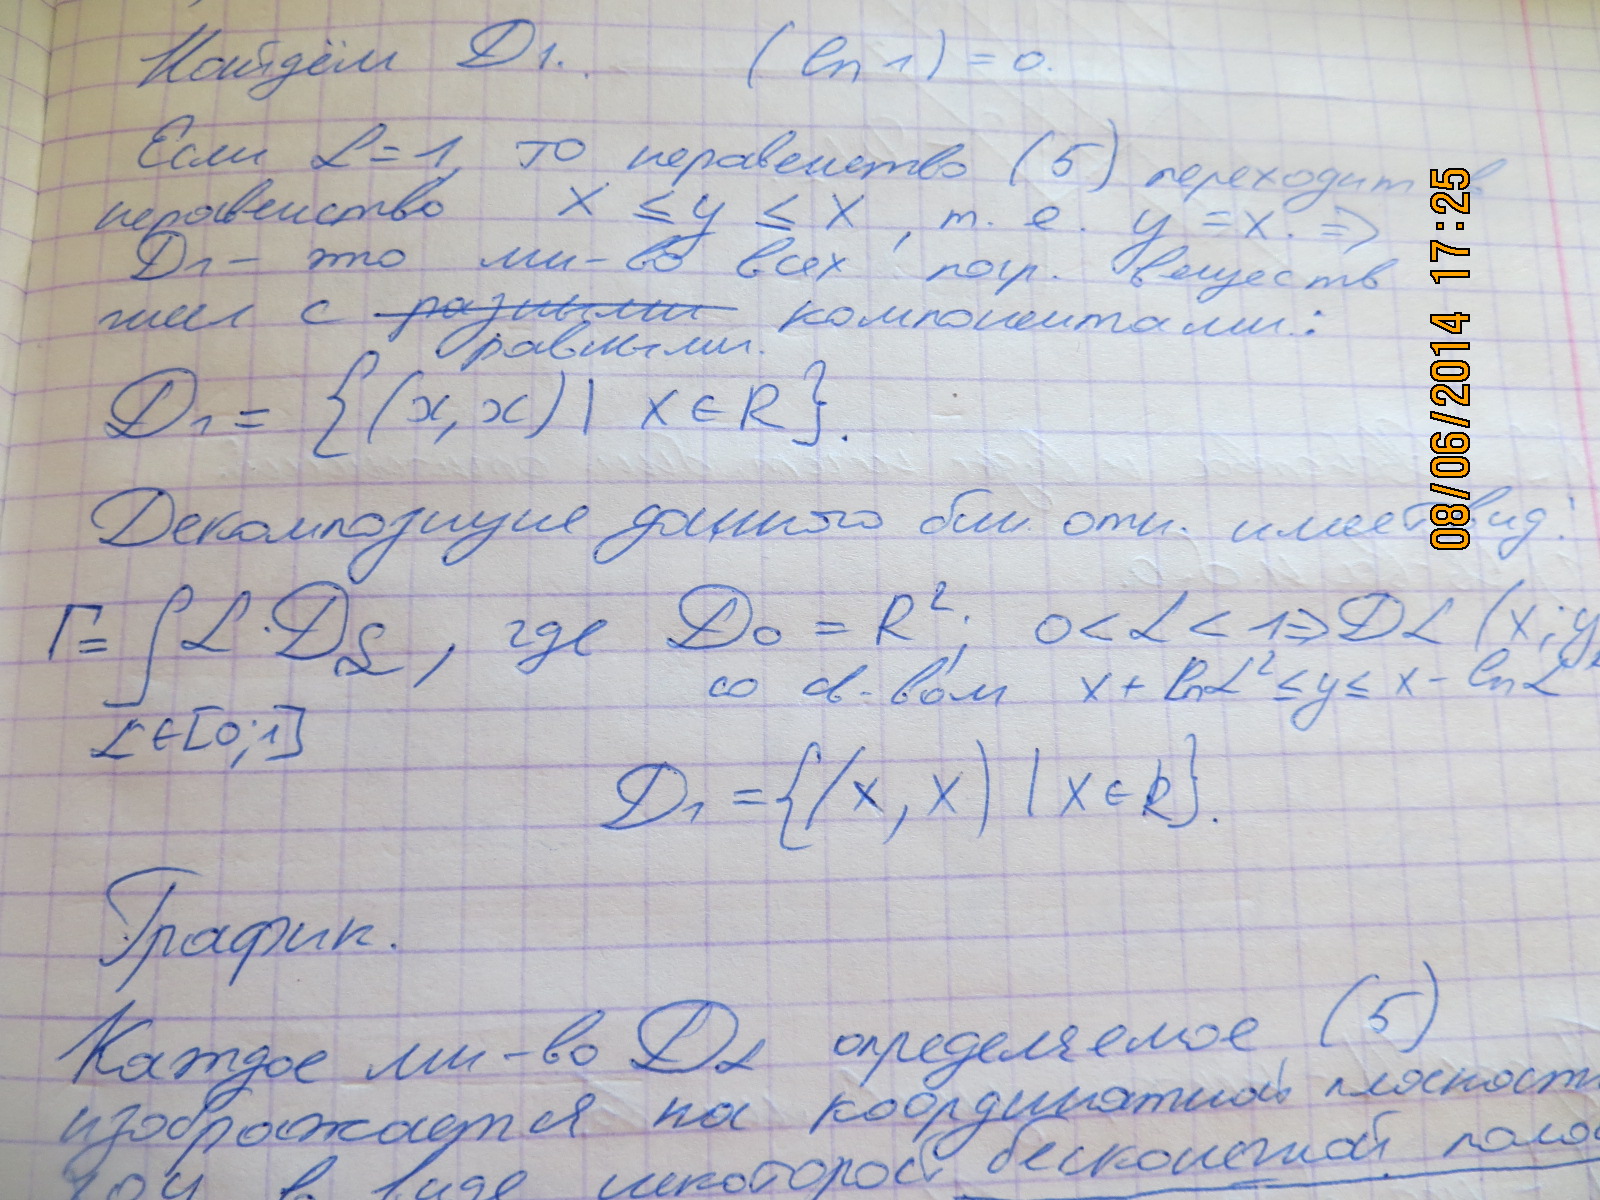 Найдём D₁. (ln 1) = 0.
Если α=1, то неравенство (5) переходит в
неравенство x ≤ y ≤ x, т. е. y = x. ⇒
D₁ – это мн-во всех поср. веществ
чисел с разными компонентами:
равными.
D₁ = {(x, x) | x ∈ R}.
Декомпозиция данного бин. отн. имеет вид:
Γ = ∫ α·Dα, где D₀ = R²; 0 < α < 1 ⇒ Dα (x; y)
со св-вом x + ln α² ≤ y ≤ x – ln α²
α ∈ [0; 1]
D₁ = {(x, x) | x ∈ R}.
График.
Каждое мн-во Dα определяемое (5)
изображается на координатной плоскости
xoy в виде некоторой бесконечной
08/06/2014 17:25